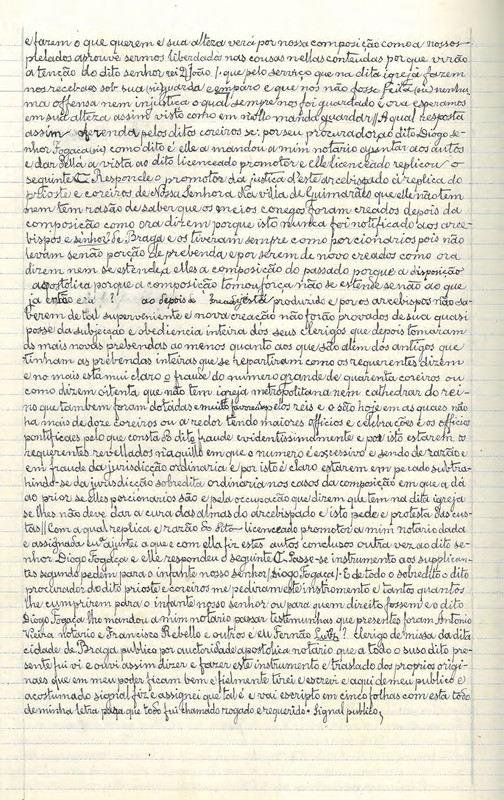 e fazem o que querem e sua alteza verá por nossa composição como a nossos
prelados aprouve sermos libardados nas cousas nella contéudas por que virão
a tenção do dito senhor rei D João /. que pelo serviço que na dita igreja fazem
nos recebaes sob sua (sic) guarda e emparo e que nós não fosse feita (sic) nenhu
ma offensa nem injustiça o qual sempre nos foi guardado e ora esperamos
em sua alteza assim visto como em nollo mandar guardar // A qual resposta
assim oferenda pelos ditos coreiros sc. por seu procurador ao dito Diogo se-
nhor Fogaca (sic) como dito é elle a mandou a mim notario ajuntar aos autos
e dar della a vista ao dito licenceado promotor e elle licenceado replicou o
seguinte C. Responde o promotor da justiça d'este arcebispado á replica do
prioste e coreiros de Nossa Senhora da villa de Guimarães que elle não tem
nem tem rasão de saber que os meios conegos foram creados depois da
composição como ora dizem porque isto nunca foi notificado aos arce-
bispos e senhor de Braga e os tiveram sempre como porcionarios pois não
levam senão porção de prebenda e por serem de novo creados como ora
dizem nem se estende a elles a composição do passado porque a disposição
apostolica porque a composição tomou força não se estende senão ao que
já então era ? ao depois é produzido e por os arcebispos não sa-
berem de tal superveniente e nova creação não forão provados de sua quasi
posse da subjecção e obediencia inteira dos seus clerigos que depois tomaram
as mais novas prebendas ao menos quanto aos que são além dos antigos que
tinham as prebendas inteiras que se repartiram como os requerentes dizem
e no mais está mui claro o fraude do numero grande de quarenta coreiros ou
como dizem oitenta que não tem igreja metropolitana nem cathedral do rei-
no que tambem foram dotadas e muito favorecidas pelos reis e o são hoje em as quaes não
ha mais de doze coreiros ou a redor tendo maiores officios e celebrações e os officios
pontificaes pelo que consta do dito fraude evidentissimamente e por isto estarem os
requerentes revellados n'aquillo em que o numero é excessivo e sendo de razão e
em fraude da jurisdicção ordinaria e por isto é claro estarem em peccado subtra-
hindo-se da jurisdicção sobredita ordinaria nos casos da composição em que a dá
ao prior se elles porcionarios são e pela occupação que dizem que tem na dita igreja
se lhes não deve dar a cura das almas do arcebispado e isto pede e protesta das cus-
tas // Com a qual replica e razão do dito licenceado promotor a mim notario dada
e assignada eu ajuntei a que e com ella fiz estes autos conclusos outra vez ao dito se-
nhor Diogo Fogaça e elle respondeu o seguinte C. Passe-se instrumento aos supplican-
tes segundo pedem para o infante nosso senhor / Diogo Fogaça /. E de todo o sobredito o dito
procurador do dito prioste e coreiros me pediram este instrumento e tantos quantos
lhe cumprirem para o infante nosso senhor ou para quem direito fossem e o dito
Diogo Fogaça lho mandou a mim notario passar testimunhas que presentes foram Antonio
Vieira notario e Francisco Rebello e outros e eu Fernão ? clerigo de missa da dita
cidade de Braga publico por auctoridade apostolica notario que a todo o suso dito pre-
sente fui vi e ouvi assim dizer e fazer este instrumento e traslado dos proprios origi-
naes que em meu poder ficam bem e fielmente tirei e escrevi e aqui de meu publico e
acostumado signal fiz e assignei que tal é e vai escripto em cinco folhas com esta todo
de minha letra para que todo fui chamado rogado e requerido. Signal publico,